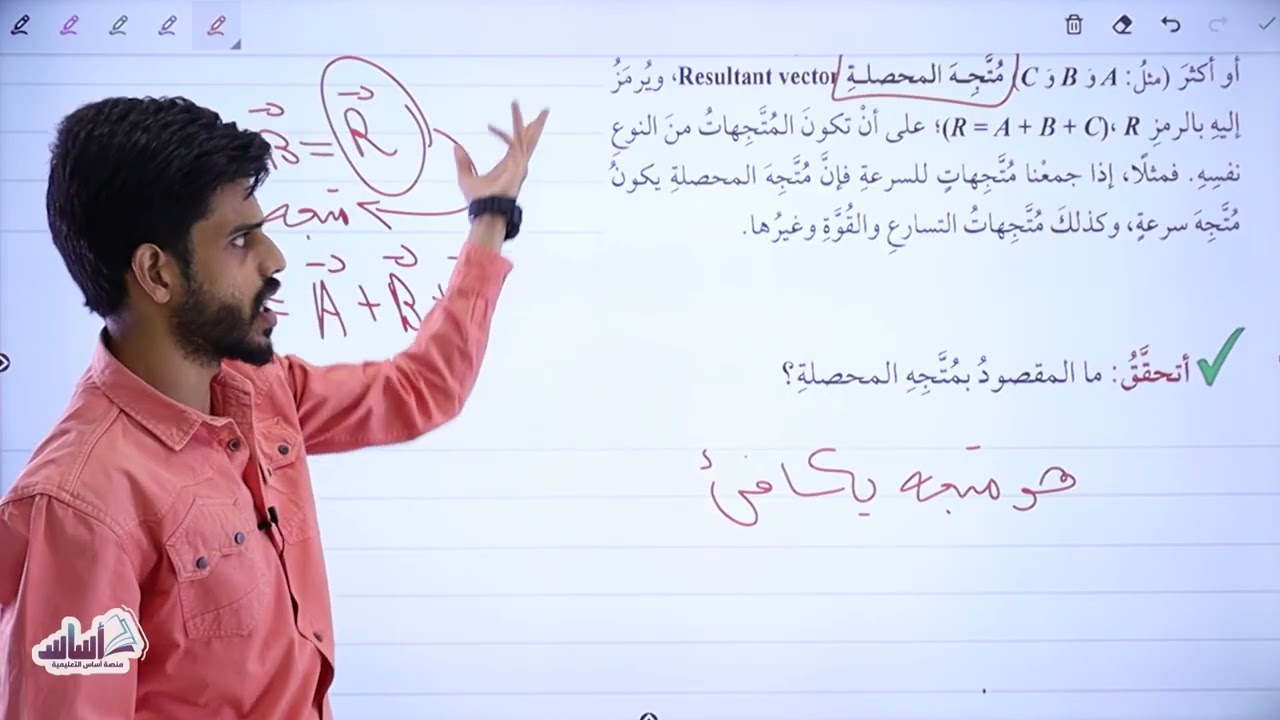 أو أكثرَ (مثلُ: A وَ B وَ C) مُتَّجِهَ المحصلةِ Resultant vector، ويُرمَزُ
إليهِ بالرمزِ R، (R = A + B + C)؛ على أنْ تكونَ المُتَّجِهاتُ منَ النوعِ
نفسِهِ. فمثلًا، إذا جمعْنا مُتَّجِهاتٍ للسرعةِ فإنَّ مُتَّجِهَ المحصلةِ يكونُ
مُتَّجِهَ سرعةٍ، وكذلكَ مُتَّجِهاتُ التسارعِ والقُوَّةِ وغيرُها.
أتحقَّقُ: ما المقصودُ بمُتَّجِهِ المحصلةِ؟
هو متجه يكافئ
B = R
متجه
= A + B +
أساس
منصة أساس التعليمية